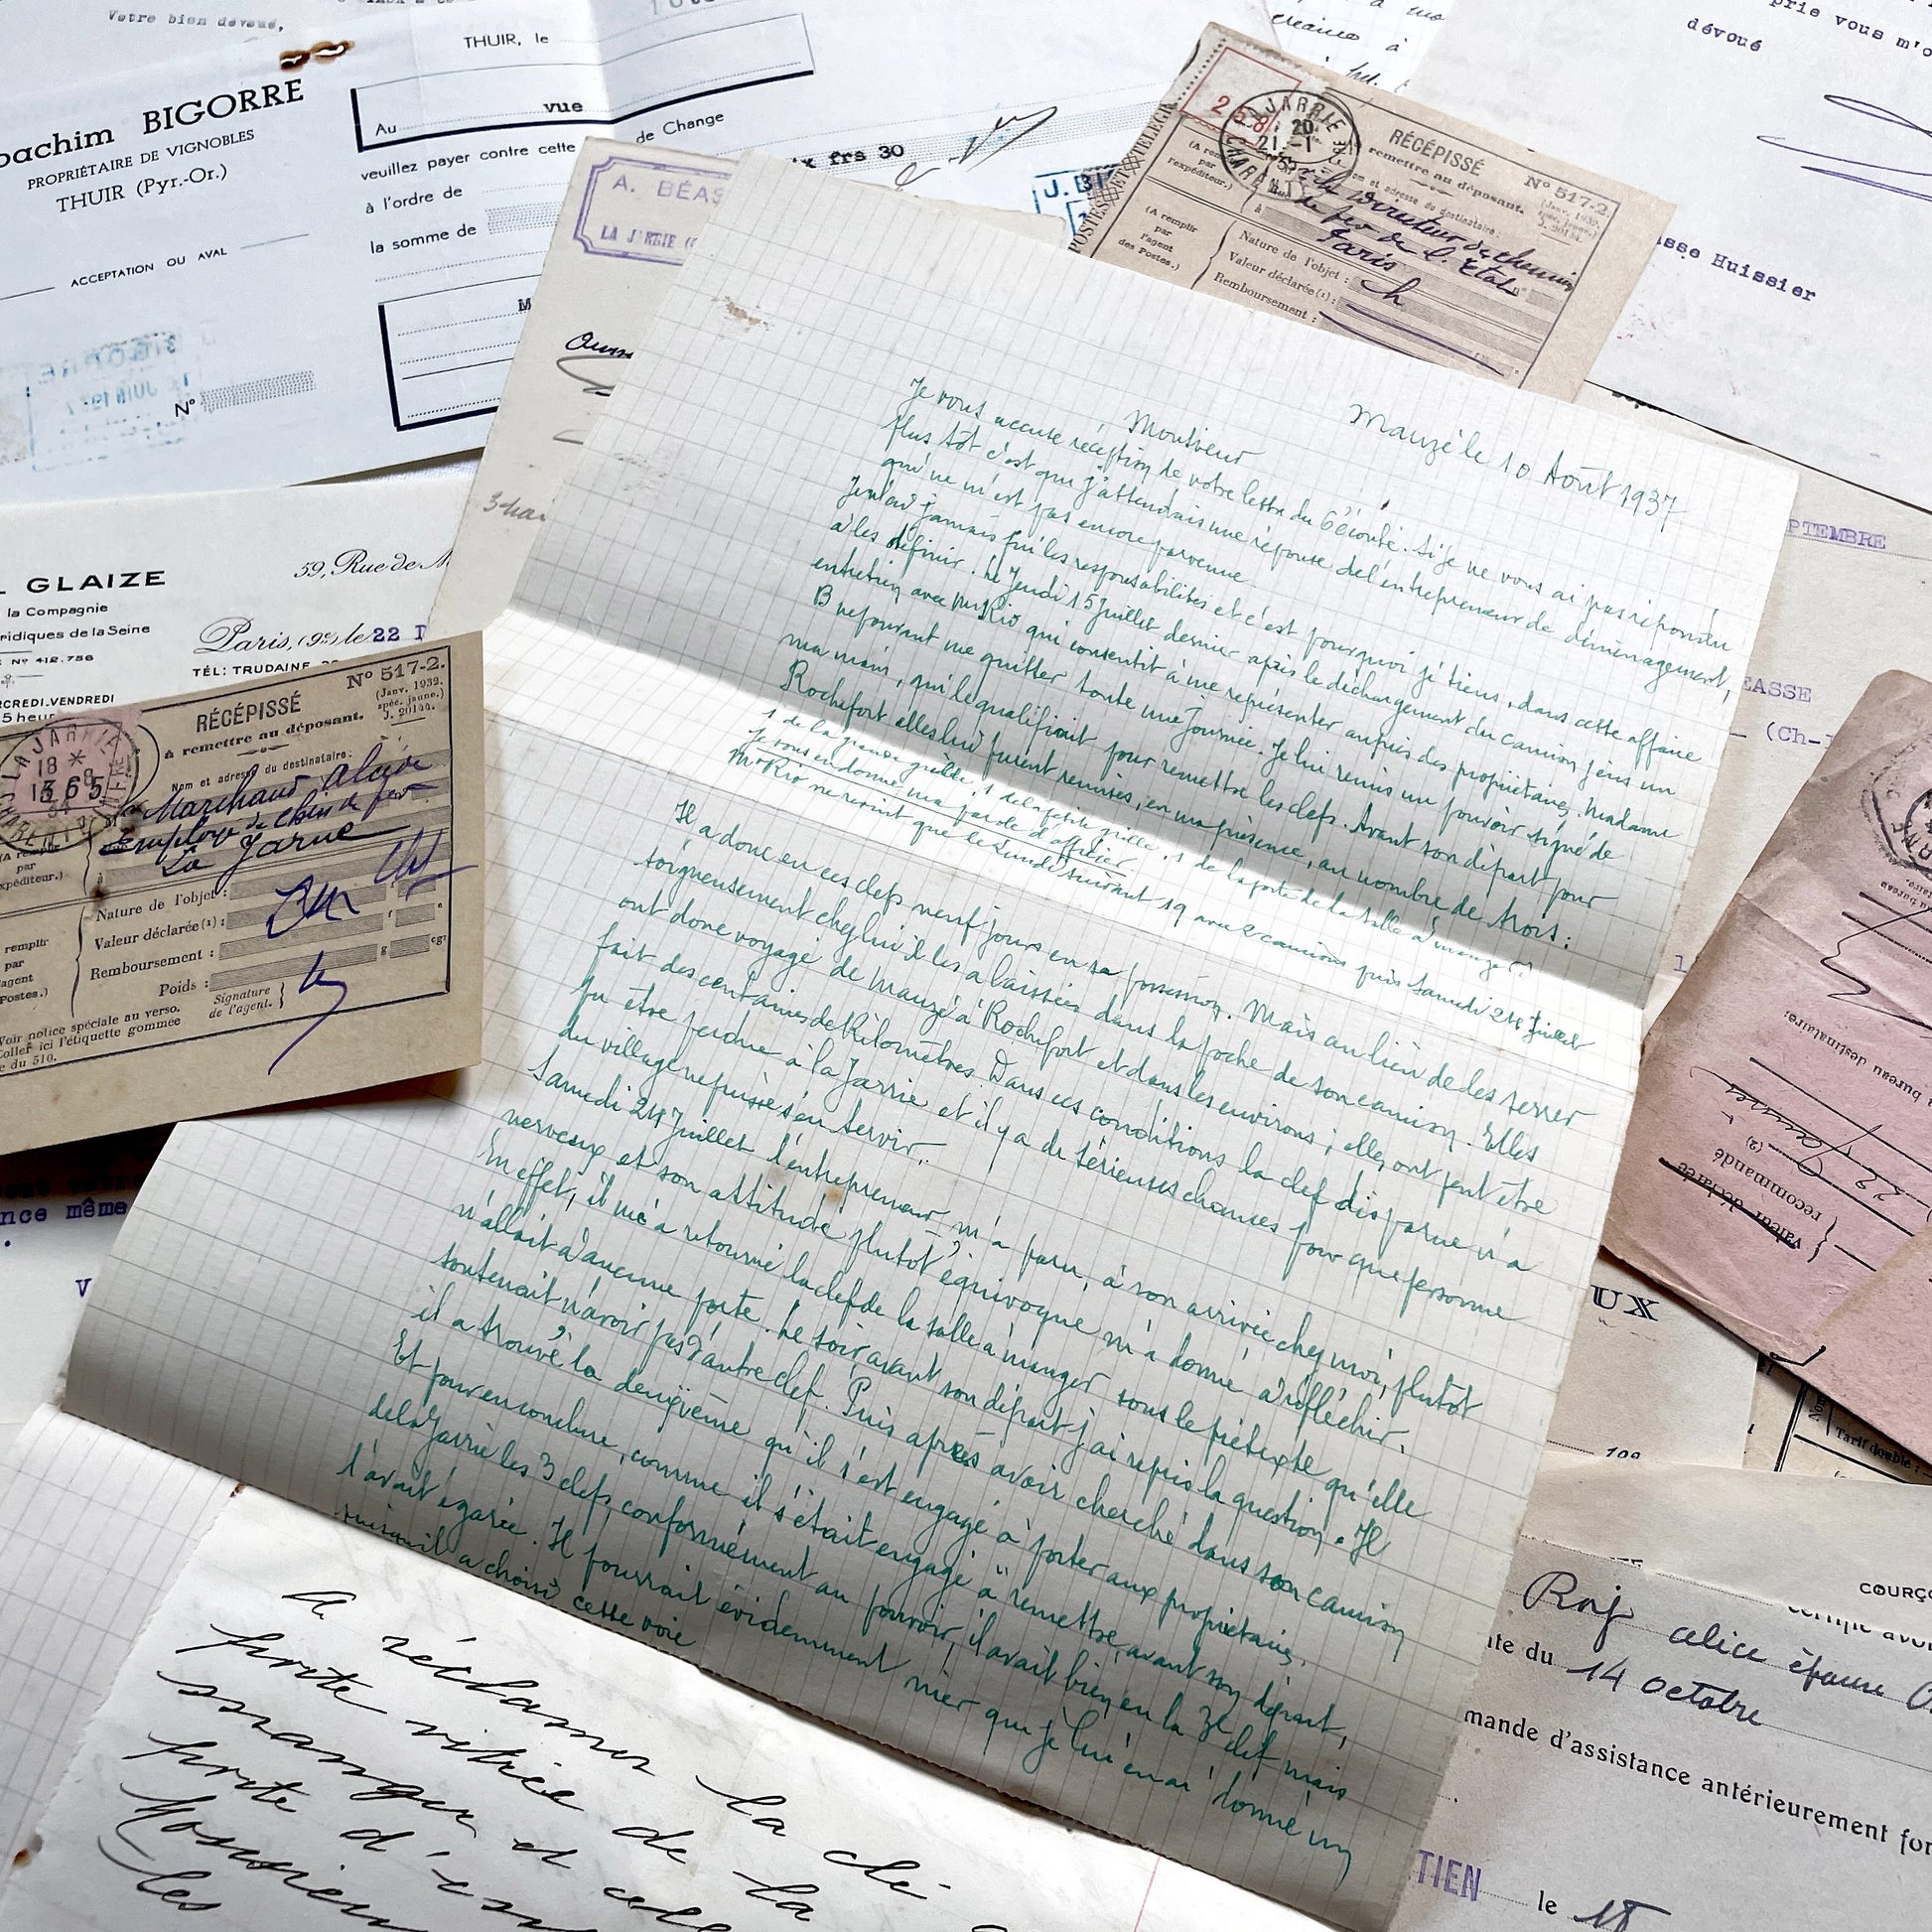 Votre bien dévoué,
THUIR, le
oachim BIGORRE
PROPRIÉTAIRE DE VIGNOBLES
THUIR (Pyr.-Or.)
ACCEPTATION OU AVAL
Nº
Au vue
de Change
veuillez payer contre cette
à l'ordre de
la somme de
frs 30
M
J. BI
A. BÉAS
LA JARRIE (
3 mai
prie vous m'o
dévoué
sse Huissier
POSTES ET TÉLÉGR
258
LA JARRIE
20
21 -1
RÉCÉPISSÉ
à remettre au déposant.
Nº 517-2.
(Janv. 1932.
Nom et adresse du destinataire :
de fer de l'Etat
Paris
Nature de l'objet :
Valeur déclarée (1) :
Remboursement :
(A remplir
par
l'agent
des Postes.)
L GLAIZE
la Compagnie
ridiques de la Seine
Nº 412.756
RCREDI-VENDREDI
5 heur
59, Rue de M
Paris, (9e) le 22 D
TÉL: TRUDAINE
RÉCÉPISSÉ
à remettre au déposant.
Nº 517-2.
(Janv. 1932.
spéc. jaune.)
J. 20144.
LA JARRIE
18 *
1365
Nom et adresse du destinataire :
Marchand Alcide
Employé de chin de fer
La Jarne
Nature de l'objet :
Valeur déclarée (1) :
Remboursement :
Poids :
Signature
de l'agent.
(A remplir
par
expéditeur.)
remplir
par
l'agent
Postes.)
Voir notice spéciale au verso.
Coller ici l'étiquette gommée
du 510.
nce même
Mauzé le 10 Août 1937
Monsieur
Je vous accuse réception de votre lettre du 6 écoulé. Si je ne vous ai pas répondu
plus tôt c'est que j'attendais une réponse de l'entrepreneur de déménagement,
qui ne m'est pas encore parvenue.
Je n'ai jamais fui les responsabilités et c'est pourquoi je tiens, dans cette affaire
à les définir. Le Jeudi 15 Juillet dernier après le déchargement du camion j'eus un
entretien avec Mr Rio qui consentit à me représenter auprès des propriétaires. Madame
B ne pouvant me quitter toute une journée. Je lui remis un pouvoir signé de
ma main, qui le qualifiait pour remettre les clefs. Avant son départ pour
Rochefort elles lui furent remises, en ma présence, au nombre de trois :
1 de la grande grille, 1 de la petite grille, 1 de la porte de la salle à manger.
Je vous en donne ma parole d'officier
Mr Rio ne revint que le Lundi suivant 19 avec 2 camions puis Samedi 24 Juillet
Il a donc eu ces clefs neuf jours en sa possession. Mais au lieu de les serrer
soigneusement chez lui il les a laissées dans la poche de son camion. Elles
ont donc voyagé de Mauzé à Rochefort et dans les environs ; elles ont peut être
fait des centaines de Kilomètres. Dans ces conditions la clef disparue n'a
pu être perdue à la Jarrie et il y a de sérieuses chances pour que personne
du village ne puisse s'en servir.
Samedi 24 Juillet l'entrepreneur m'a paru, à son arrivée chez moi, plutôt
nerveux et son attitude plutôt équivoque m'a donné à réfléchir.
En effet, il m'a retourné la clef de la salle à manger sous le prétexte qu'elle
n'allait à aucune porte. Le soir avant son départ j'ai repris la question. Il
soutenait n'avoir pas d'autre clef. Puis après avoir cherché dans son camion
il a trouvé la deuxième qu'il s'est engagé à porter aux propriétaires.
Et pour en conclure, comme il s'était engagé à remettre, avant son départ,
de la Jarrie les 3 clefs, conformément au pouvoir, il avait bien eu la 3e clef mais
l'avait égarée. Il pourrait évidemment nier que je lui en ai donné un
a choisi cette voie
à réclamer la clé
porte vitrée de la
manger et celle
porte d'en
Monsieur
les
PTEMBRE
EASSE
(Ch-
bureau destinataire:
valeur déclarée
recommandé
(2)
UX
Tarif double :
COURÇ
certifie avoi
Roy Alice épouse
te du 14 octobre
mande d'assistance antérieurement for
TIEN le 18